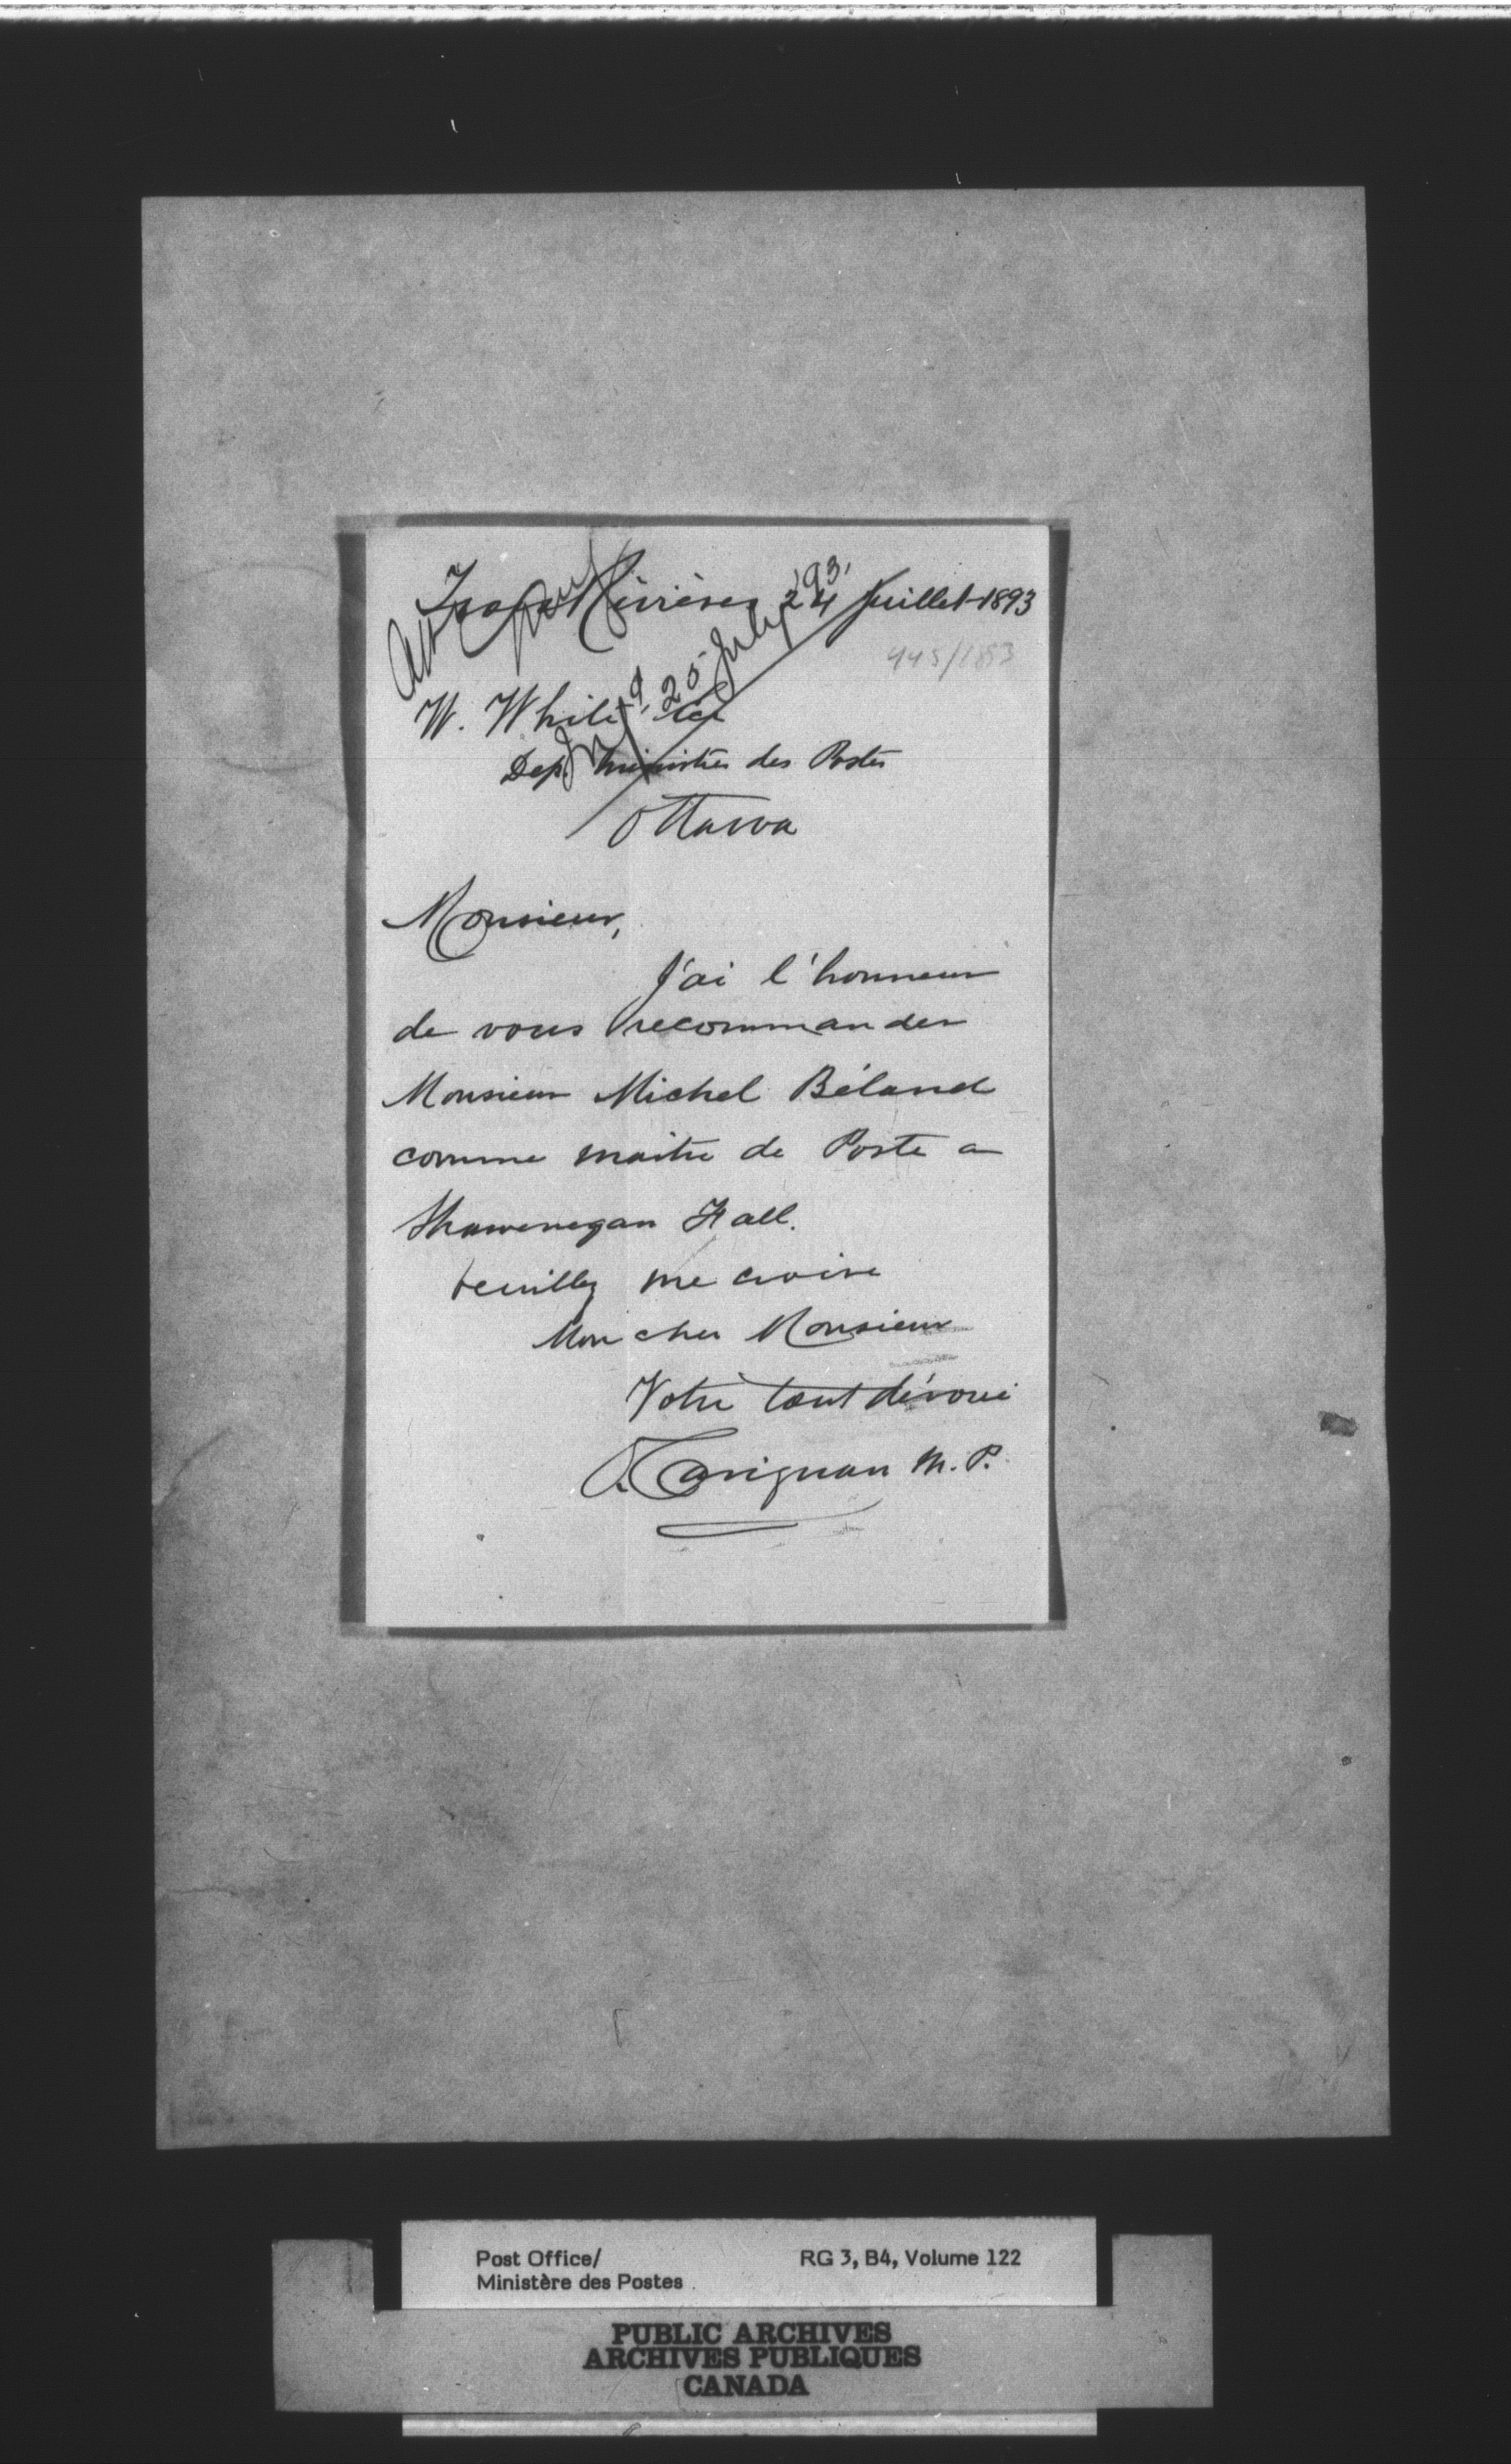 Trois Rivières 24 Juillet 1893
445/1893
25 July '93.
W. White
Dep. ministre des Postes
Ottawa
Monsieur,
J'ai l'honneur
de vous recommander
Monsieur Michel Béland
comme maitre de Poste a
Shawenegan Fall.
veuillez me croire
Mon cher Monsieur
Votre tout dévoué
O. Carignan M.P.
Post Office/
Ministère des Postes
RG 3, B4, Volume 122
PUBLIC ARCHIVES
ARCHIVES PUBLIQUES
CANADA